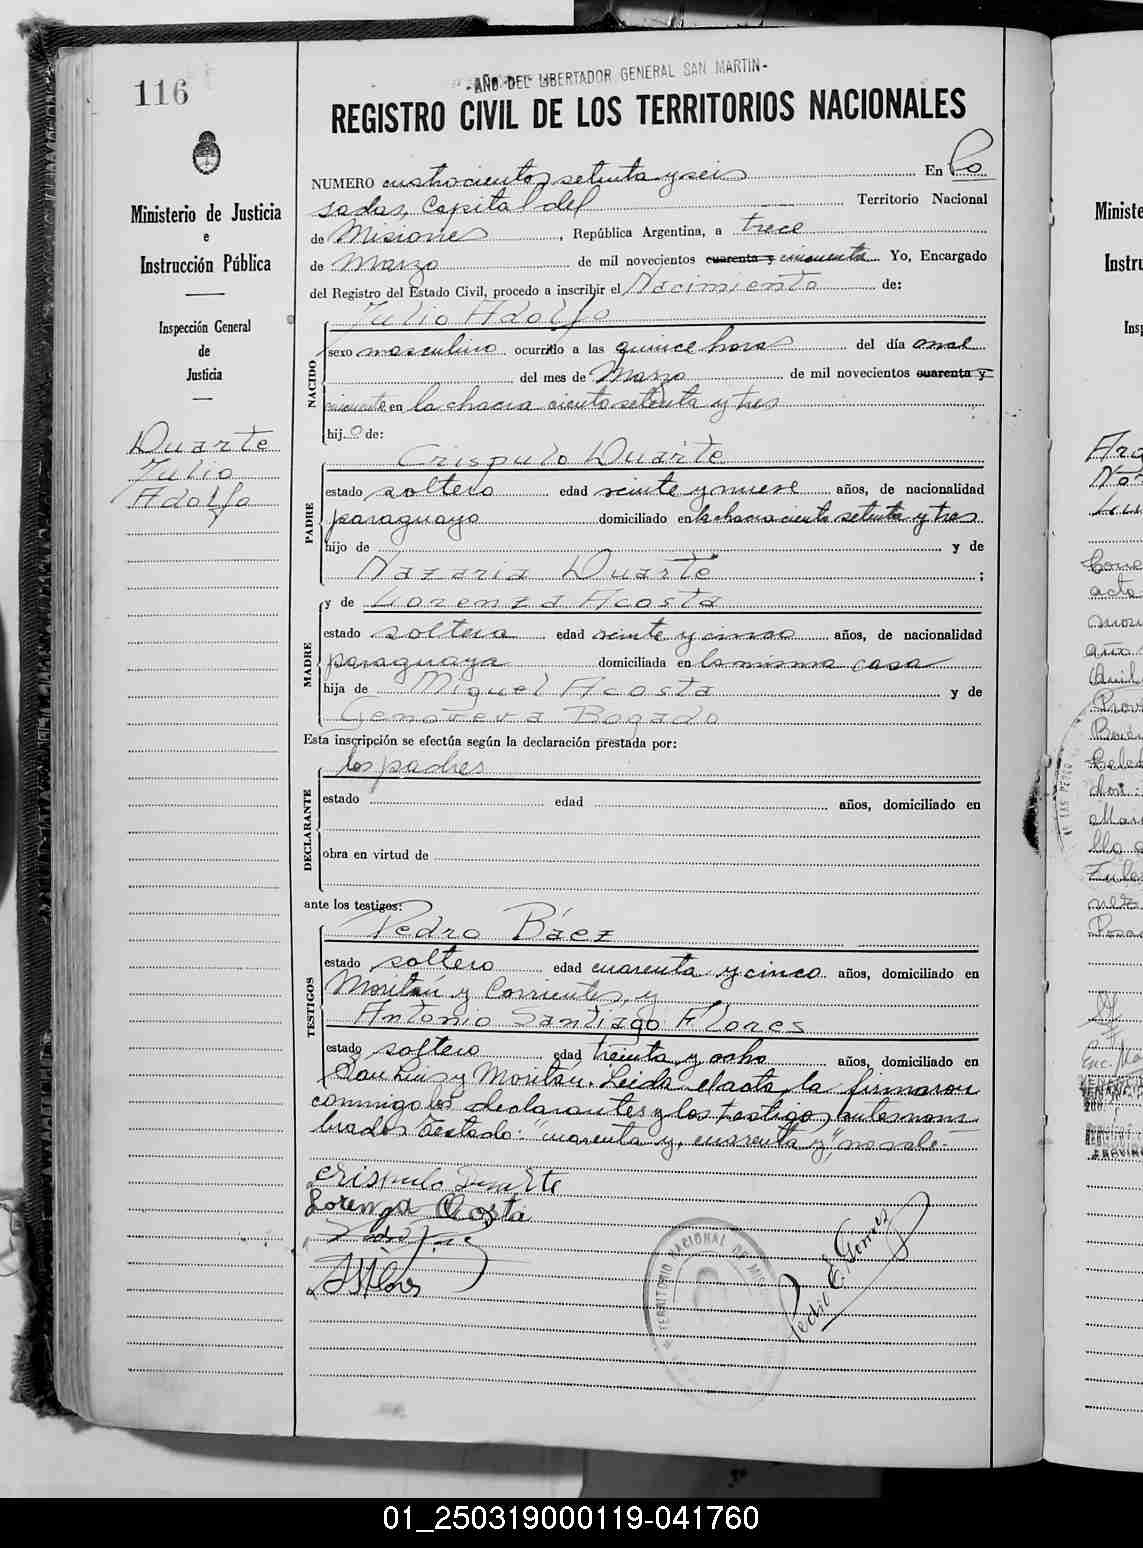 116
-AÑO DEL LIBERTADOR GENERAL SAN MARTIN-
REGISTRO CIVIL DE LOS TERRITORIOS NACIONALES
Ministerio de Justicia
e
Instrucción Pública
Inspección General
de
Justicia
Duarte
Julio
Adolfo
NUMERO cuatrocientos setenta y seis En Po
sadas, Capital del Territorio Nacional
de Misiones, República Argentina, a trece
de Marzo de mil novecientos cuarenta y cincuenta Yo, Encargado
del Registro del Estado Civil, procedo a inscribir el Nacimiento de:
Julio Adolfo
NACIDO
sexo masculino ocurrido a las quince horas del día once
del mes de Marzo de mil novecientos cuarenta y
cincuenta en la chacra ciento setenta y tres
hijo de:
Crispulo Duarte
PADRE
estado soltero edad veinte y nueve años, de nacionalidad
paraguayo domiciliado en la chacra ciento setenta y tres
hijo de y de
Nazaria Duarte ;
y de Lorenza Acosta
MADRE
estado soltera edad veinte y cinco años, de nacionalidad
paraguaya domiciliada en la misma casa
hija de Miguel Acosta y de
Genoveva Bogado
Esta inscripción se efectúa según la declaración prestada por:
los padres
DECLARANTE
estado edad años, domiciliado en
obra en virtud de
ante los testigos:
Pedro Báez
TESTIGOS
estado soltero edad cuarenta y cinco años, domiciliado en
Moritán y Corrientes, y
Antonio Santiago Flores
estado soltero edad treinta y ocho años, domiciliado en
San Luis y Moritán. Leida el acta, la firmaron
conmigo los declarantes y los testigos antes nom
brados Testado: "cuarenta y, cuarenta y", no vale.-
Crispulo Duarte
Lorenza Acosta
ASFlores
Pedro E. Gomez
TERRITORIO NACIONAL DE MIS
Ministe
Instru
Insp
01_250319000119-041760